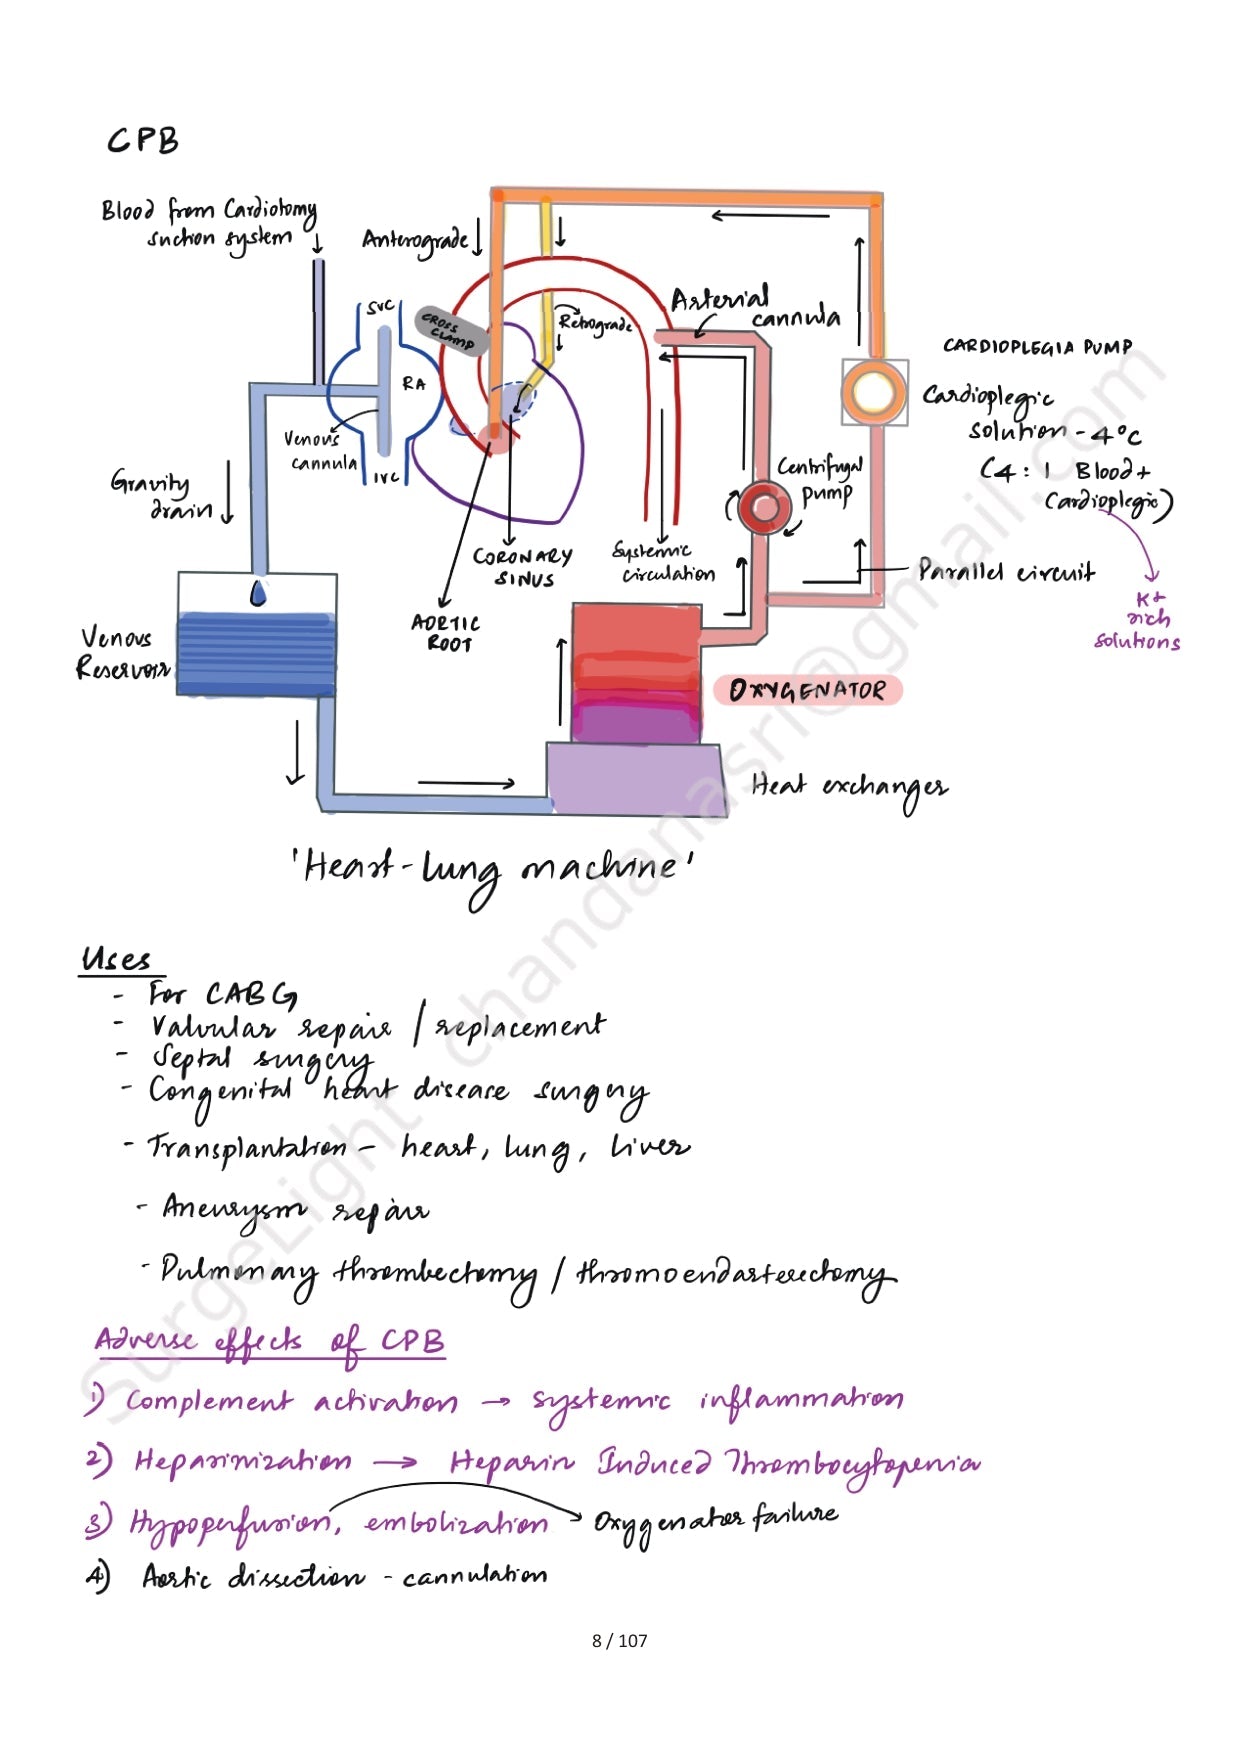 CPB
Blood from Cardiotomy
suction system
Anterograde
SVC
CROSS
CLAMP
Retrograde
Arterial
cannula
RA
CARDIOPLEGIA PUMP
Cardioplegic
solution - 4°C
(4:1 Blood +
Cardioplegic)
Venous
cannula
IVC
Gravity
drain
Centrifugal
pump
CORONARY
SINUS
Systemic
circulation
Parallel circuit
K+
rich
solutions
AORTIC
ROOT
Venous
Reservoir
OXYGENATOR
Heat exchanger
'Heart-lung machine'
Uses
- For CABG
- Valvular repair / replacement
- Septal surgery
- Congenital heart disease surgery
- Transplantation - heart, lung, liver
- Aneurysm repair
- Pulmonary thrombectomy / thromoendarterectomy
Adverse effects of CPB
1) Complement activation → systemic inflammation
2) Heparinization → Heparin Induced Thrombocytopenia
3) Hypoperfusion, embolization → Oxygenator failure
4) Aortic dissection - cannulation
SurgeLight chandanasri@gmail.com
8 / 107